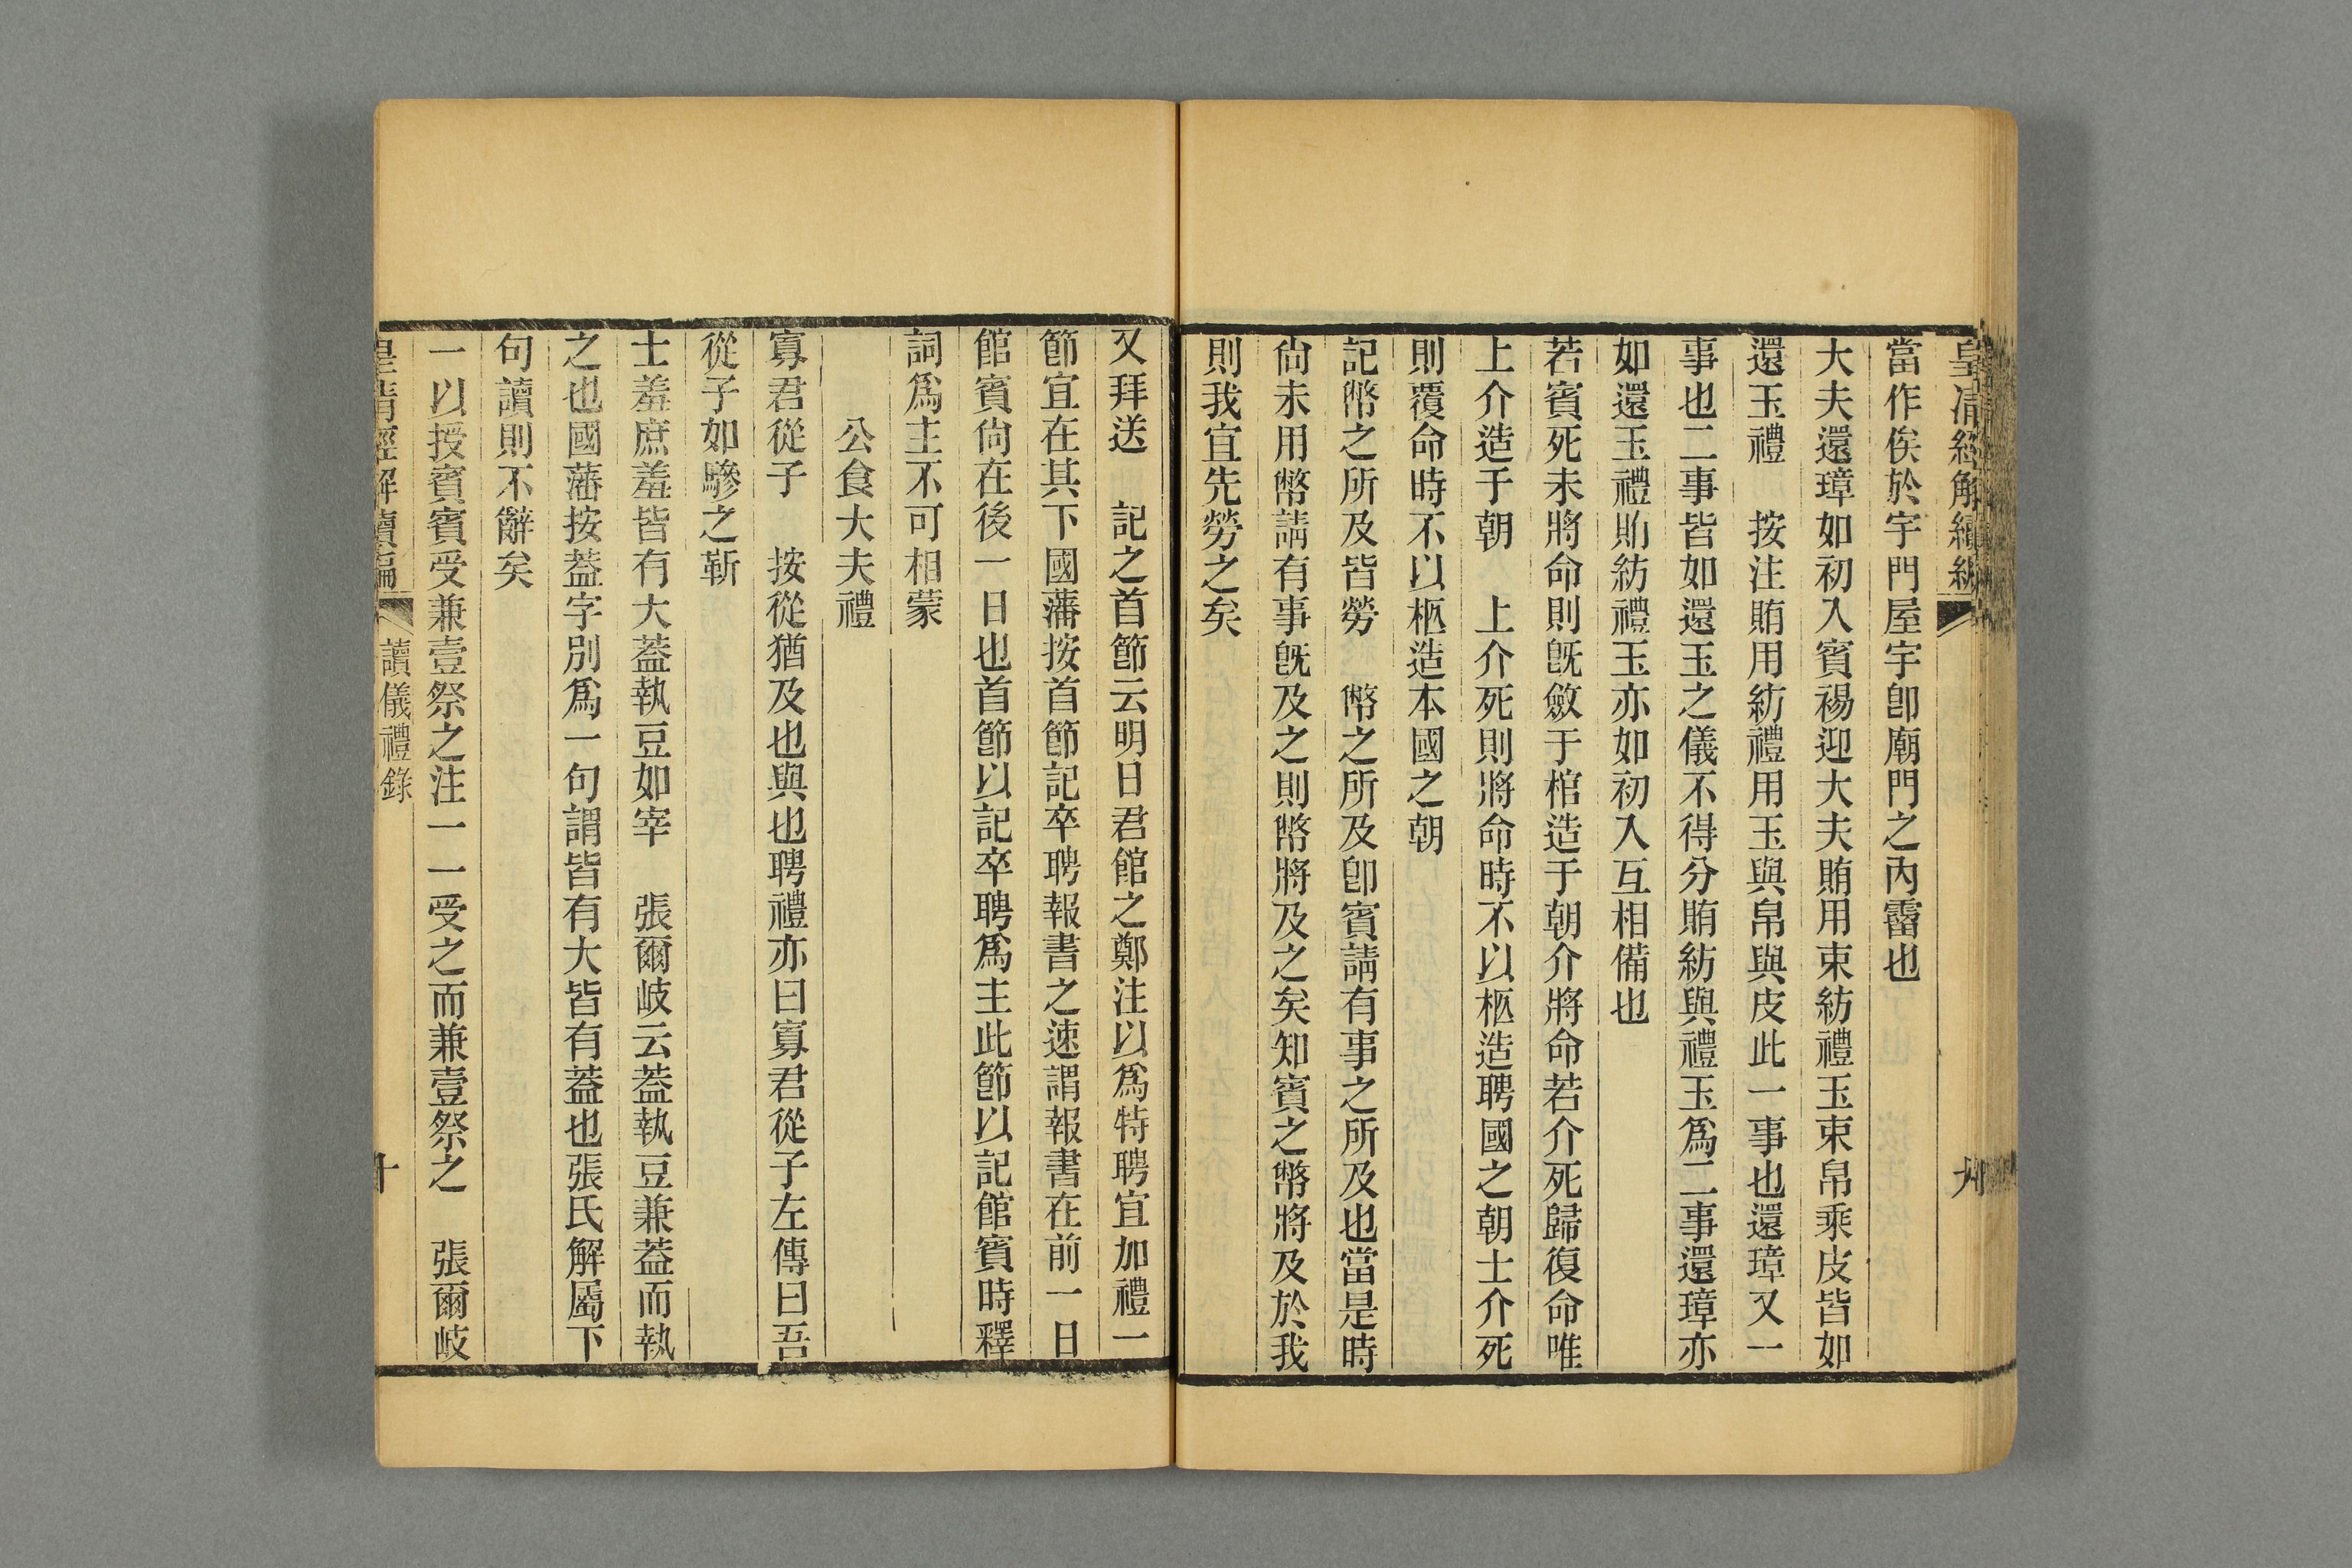 皇清經解續編
九
當作俟於宇門屋宇卽廟門之內霤也
大夫還璋如初入賓裼迎大夫賄用束紡禮玉束帛乘皮皆如
還玉禮　按注賄用紡禮用玉與帛與皮此一事也還璋又一
事也二事皆如還玉之儀不得分賄紡與禮玉爲二事還璋亦
如還玉禮賄紡禮玉亦如初入互相備也
若賓死未將命則旣斂于棺造于朝介將命若介死歸復命唯
上介造于朝　上介死則將命時不以柩造聘國之朝士介死
則覆命時不以柩造本國之朝
記幣之所及皆勞　幣之所及卽賓請有事之所及也當是時
尙未用幣請有事旣及之則幣將及之矣知賓之幣將及於我
則我宜先勞之矣
又拜送　記之首節云明日君館之鄭注以爲特聘宜加禮一
節宜在其下國藩按首節記卒聘報書之速謂報書在前一日
館賓尙在後一日也首節以記卒聘爲主此節以記館賓時釋
詞爲主不可相蒙
公食大夫禮
寡君從子　按從猶及也與也聘禮亦曰寡君從子左傳曰吾
從子如驂之靳
士羞庶羞皆有大蓋執豆如宰　張爾岐云蓋執豆兼蓋而執
之也國藩按蓋字別爲一句謂皆有大皆有蓋也張氏解屬下
句讀則不辭矣
一以授賓賓受兼壹祭之注一一受之而兼壹祭之　張爾岐
皇清經解續編
讀儀禮錄
十